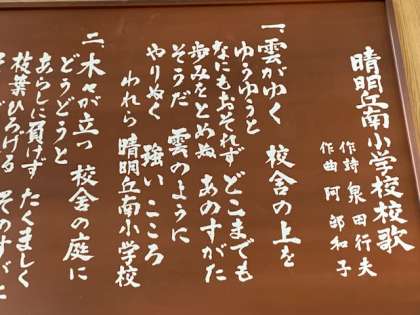 晴明丘南小学校校歌
作詩 泉田行夫
作曲 阿部和子
一、雲がゆく 校舎の上を
ゆうゆうと
なにもおそれず どこまでも
歩みをとめぬ あのすがた
そうだ 雲のように
やりぬく 強いこころ
われら 晴明丘南小学校
二、木々が立つ 校舎の庭に
どうどうと
あらしに負けず たくましく
枝葉ひろげる そのすがた